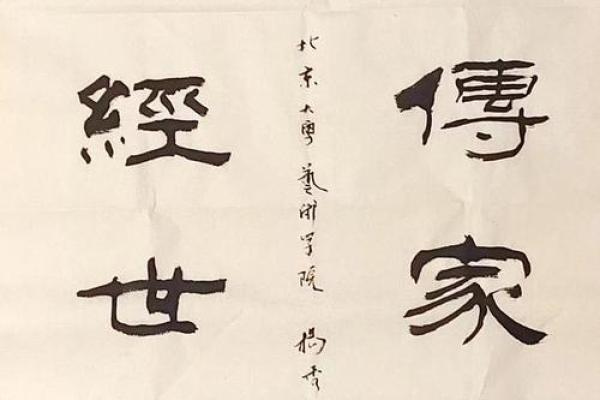 傳家
北京大學藝術学院 楊
經世